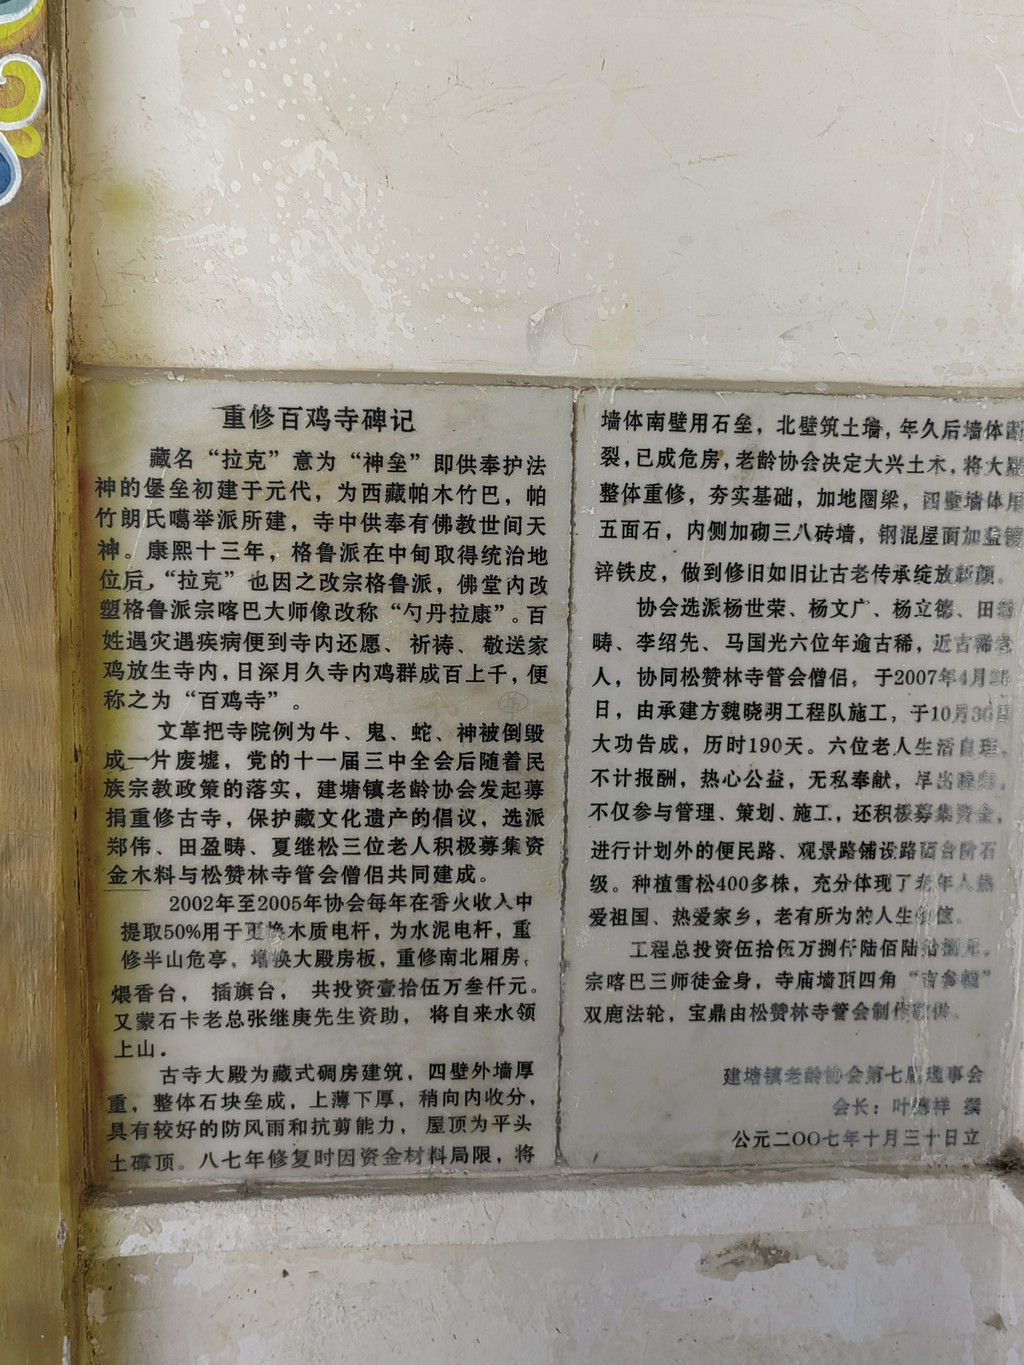 重修百鸡寺碑记
藏名“拉克”意为“神垒”即供奉护法
神的堡垒初建于元代，为西藏帕木竹巴，帕
竹朗氏噶举派所建，寺中供奉有佛教世间天
神。康熙十三年，格鲁派在中甸取得统治地
位后，“拉克”也因之改宗格鲁派，佛堂内改
塑格鲁派宗喀巴大师像改称“勺丹拉康”。百
姓遇灾遇疾病便到寺内还愿、祈祷、敬送家
鸡放生寺内，日深月久寺内鸡群成百上千，便
称之为“百鸡寺”。
文革把寺院例为牛、鬼、蛇、神被倒毁
成一片废墟，党的十一届三中全会后随着民
族宗教政策的落实，建塘镇老龄协会发起募
捐重修古寺，保护藏文化遗产的倡议，选派
郑伟、田盈畴、夏继松三位老人积极募集资
金木料与松赞林寺管会僧侣共同建成。
2002年至2005年协会每年在香火收入中
提取50%用于更换木质电杆，为水泥电杆，重
修半山危亭，增换大殿房板，重修南北厢房，
煨香台，插旗台，共投资壹拾伍万叁仟元。
又蒙石卡老总张继庚先生资助，将自来水领
上山．
古寺大殿为藏式碉房建筑，四壁外墙厚
重，整体石块垒成，上薄下厚，稍向内收分，
具有较好的防风雨和抗剪能力，屋顶为平头
土磹顶。八七年修复时因资金材料局限，将
墙体南壁用石垒，北壁筑土墙，年久后墙体
裂，已成危房，老龄协会决定大兴土木，将大殿
整体重修，夯实基础，加地圈梁，四壁墙体用
五面石，内侧加砌三八砖墙，钢混屋面加盖镀
锌铁皮，做到修旧如旧让古老传承绽放新颜。
协会选派杨世荣、杨文广、杨立德、田
畴、李绍先、马国光六位年逾古稀，近古稀老
人，协同松赞林寺管会僧侣，于2007年4月
日，由承建方魏晓明工程队施工，于10月30日
大功告成，历时190天。六位老人生活自理，
不计报酬，热心公益，无私奉献，早出晚归，
不仅参与管理、策划、施工，还积极募集资金，
进行计划外的便民路、观景路铺设路面台阶石
级。种植雪松400多株，充分体现了老年人热
爱祖国、热爱家乡，老有所为的人生价值。
工程总投资伍拾伍万捌仟陆佰陆拾捌元。
宗喀巴三师徒金身，寺庙墙顶四角“
双鹿法轮，宝鼎由松赞林寺管会制作
建塘镇老龄协会第七届理事会
会长：叶 祥 撰
公元二〇〇七年十月三十日立